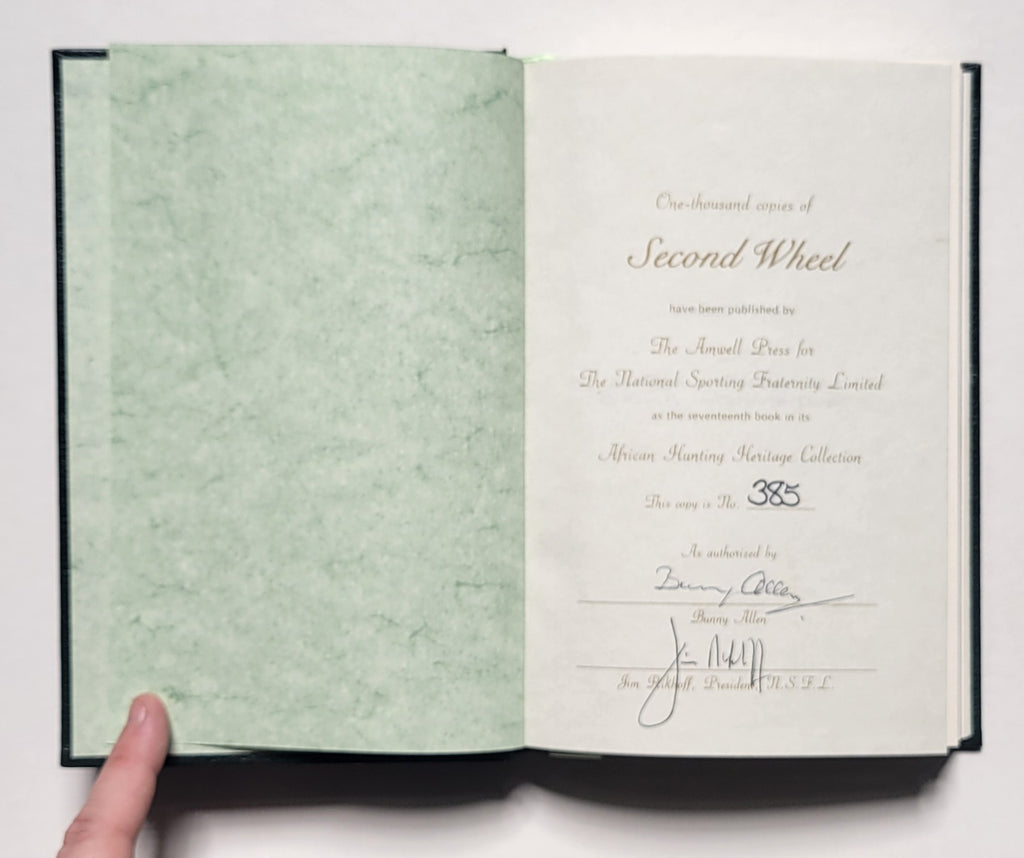 One-thousand copies of
Second Wheel
have been published by
The Amwell Press for
The National Sporting Fraternity Limited
as the seventeenth book in its
African Hunting Heritage Collection
This copy is No. 385
As authorized by
Bunny Allen
Bunny Allen
Jim Rikhoff
Jim Rikhoff, President N.S.F.L.